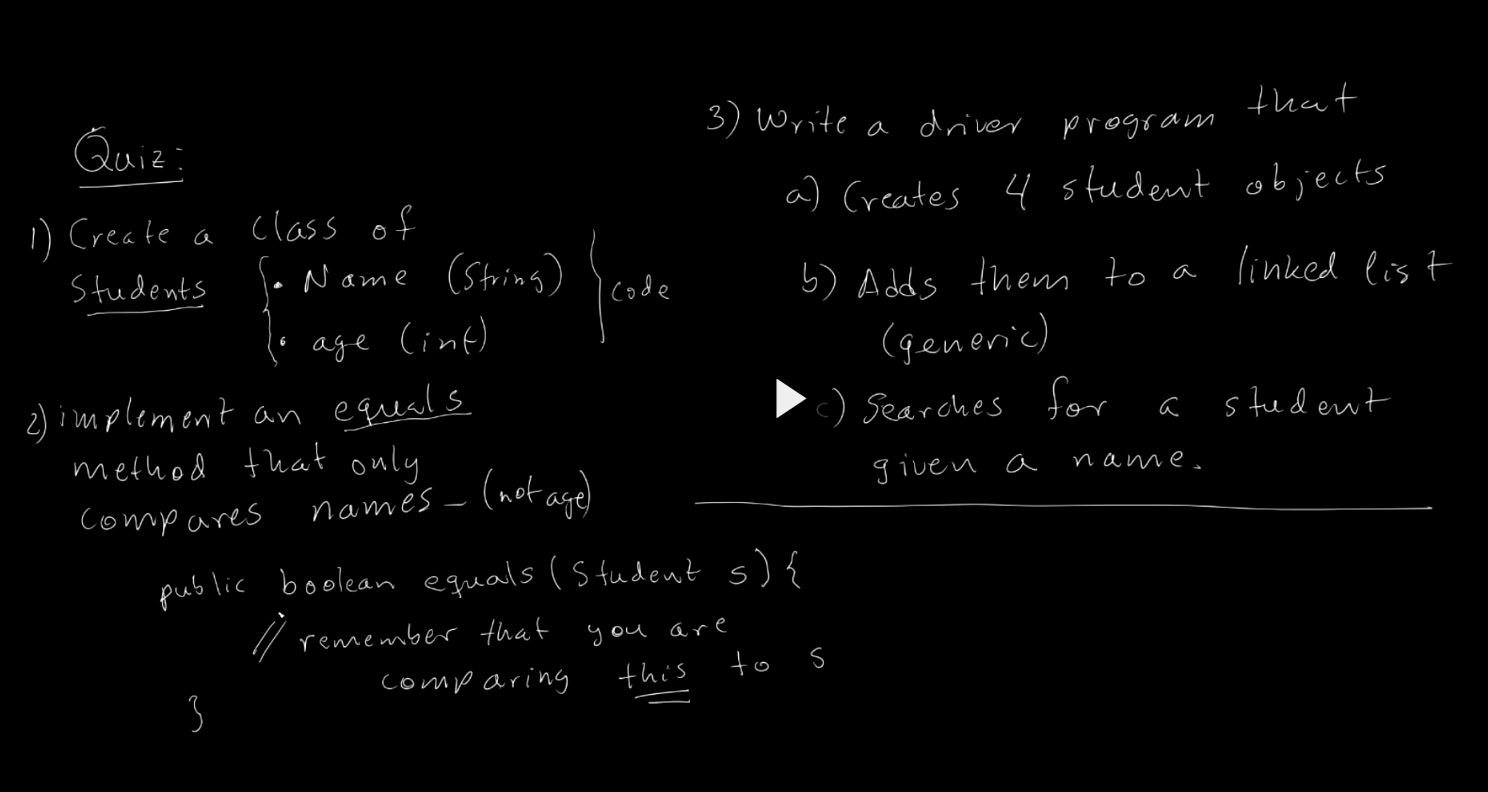 Quiz:
1) Create a class of
Students { • Name (String) } code
• age (int)
2) implement an equals
method that only
compares names - (not age)
public boolean equals (Student s) {
// remember that you are
comparing this to s
}
3) Write a driver program that
a) Creates 4 student objects
b) Adds them to a linked list
(generic)
c) Searches for a student
given a name.